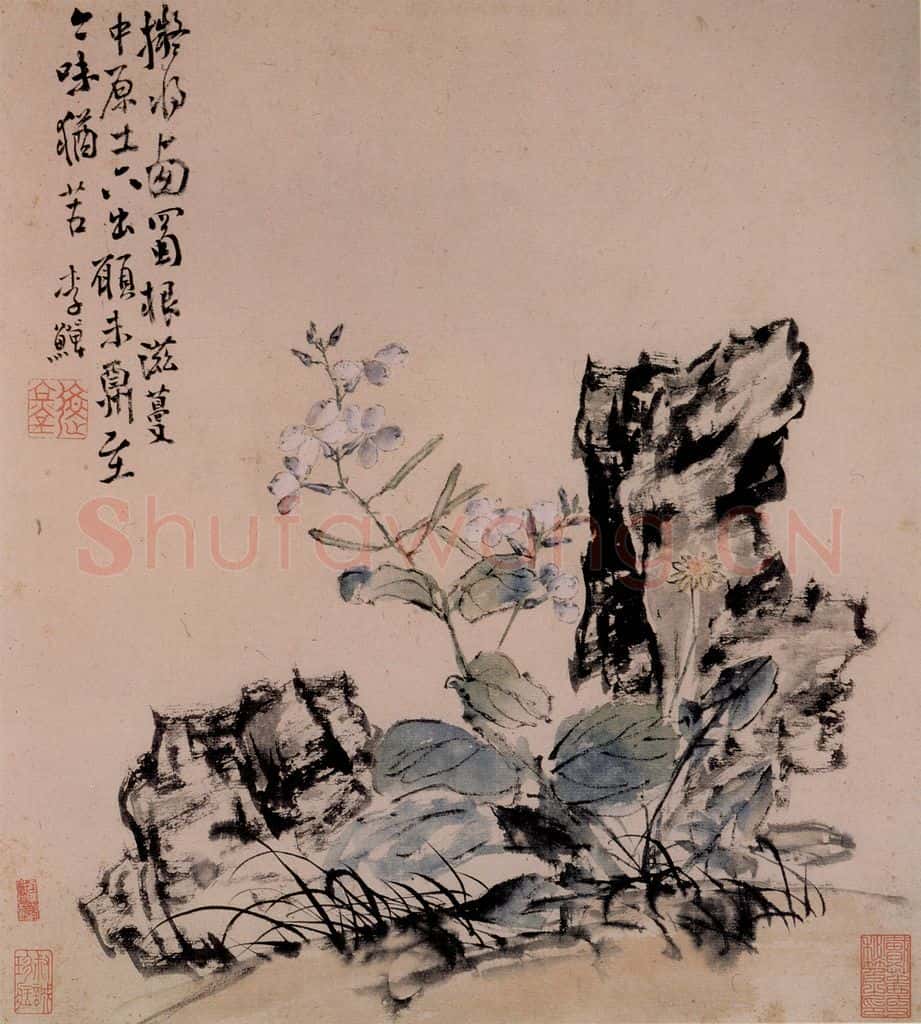 擬將蜀根滋蔓
中原土六出願未酬至
今味猶苦 李鱓
Shufawang.CN